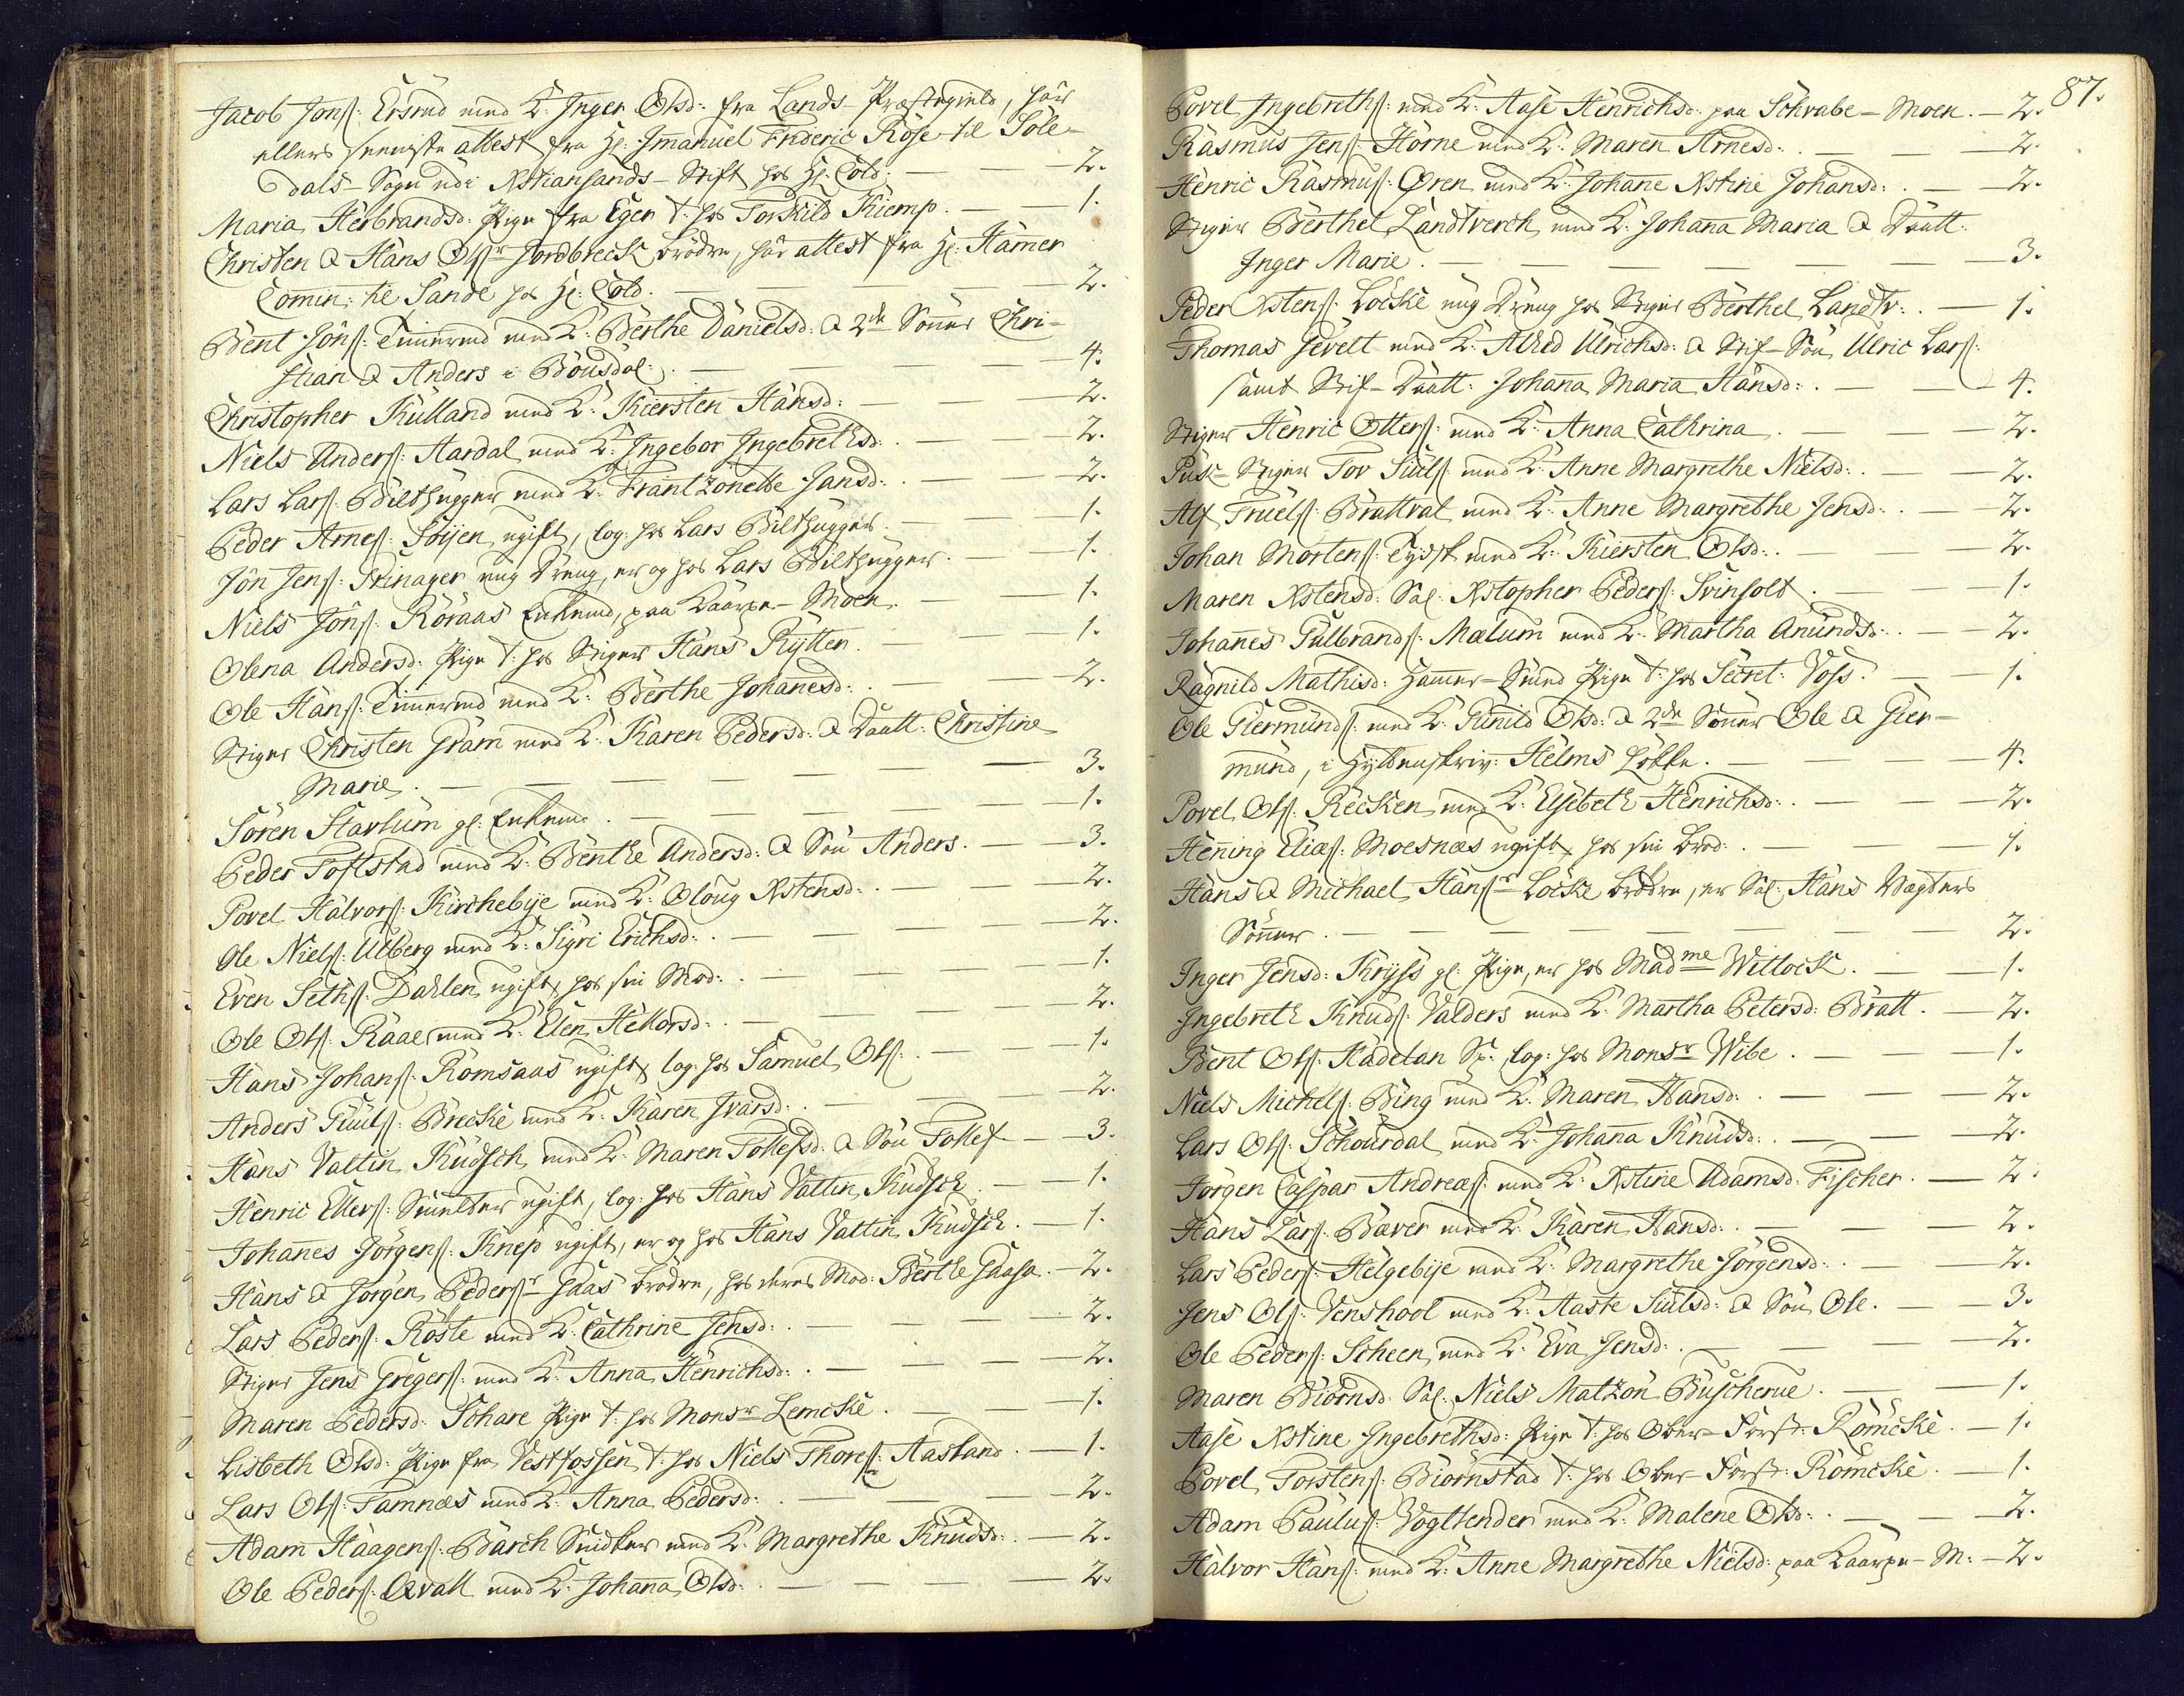 Jacob Jonſ: Ersrud med K: Inger Olsd: fra Lands-Præstegield, har
ellers seeniste attest fra Hr: Imanuel Frideric Rose til Sole-
dals-Sogn udi Xstiansands-Stift hos Hr: Cold. — 2.
Maria Herbrandsd: Pige fra Eger t: hos Torkild Kiemp. — 1.
Christen & Hans Olſr Jordbreck brødre, har attest fra Hr: Hamer
Comin: til Sande hos Hr: Cold. — 2.
Bent Jonſ: Timermd med K: Berthe Danielsd: & 2de Sönner Chri-
stian & Anders i Bousdal: — 4.
Christopher Kulland med K: Kiersten Hansd: — 2.
Niels Anderſ: Aardal med K: Ingebor Ingebrethsd: — 2.
Lars Larſ: Bilthugger med K: Frantzonette Jansd: — 2.
Peder Arneſ: Stijen ugift, log: hos Lars Bilthugger. — 1.
Jon Jenſ: Skinager ung Dreng, er og hos Lars Bilthugger. — 1.
Niels Jonſ: Röraas Enkemd, paa Saarpe-Moen. — 1.
Olena Andersd: Pige t: hos Stiger Hans Rytter. — 1.
Ole Hanſ: Timermd med K: Berthe Johanesd: — 2.
Stiger Christen Gram med K: Karen Pedersd: & Daatt: Christine
Marie. — 3.
Sören Starlum gl: Enkemd. — 1.
Peder Toftstad med K: Benthe Andersd: & Sön Anders. — 3.
Povel Halvorſ: Kirchebije med K: Oloug Xstensd: — 2.
Ole Nielſ: Ulberg med K: Sigri Erichsd: — 2.
Even Sethſ: Dahlen ugift, hos sin Mod: — 1.
Ole Olſ: Raae med K: Elen Hellorsd: — 2.
Hans Johanſ: Romsaas ugift, log: hos Samuel Olſ: — 1.
Anders Guulſ: Brecke med K: Karen Ivarsd: — 2.
Hans Valtin Kudsch med K: Maren Tollefsd: & Sön Tollef — 3.
Henric Ellerſ: Smelter ugift, log: hos Hans Valtin Kudsch — 1.
Johanes Jörgenſ: Knep ugift, er og hos Hans Valtin Kudsch. — 1.
Hans & Jörgen Pederſr Gaas brödre, hos deres Mod: Berthe Gaase. — 2.
Lars Pederſ: Röste med K: Cathrine Jensd: — 2.
Stiger Jens Gregerſ: med K: Anna Henrichsd: — 2.
Maren Pedersd: Schare Pige t: hos Monsr Lemcke. — 1.
Lisbeth Olsd: Pige fra Vestfossen t: hos Niels Thoreſ: Aasland. — 1.
Lars Olſ: Tamnes med K: Anna Pedersd: — 2.
Adam Haagenſ: Barch Snidker med K: Margrethe Knudsd: — 2.
Ole Pederſ: Qvall med K: Johana Olsd: — 2.
87.
Povel Ingebrethſ: med K: Aase Henrichsd: paa Schrabe-Moen. — 2.
Rasmus Jenſ: Horne med K: Maren Arnesd: — 2.
Henric Rasmuſ: Ören med K: Johane Xstine Johansd: — 2.
Stiger Berthel Landtverch med K: Johana Maria & Daatt:
Inger Marie. — 3.
Peder Xstenſ: Löcke ung Dreng hos Stiger Berthel Landtv: — 1.
Thomas Jevelt med K: Alhed Ulrichsd: & Stif-Sön Ulric Larſ:
samt Stif-Daatt: Johana Maria Hansd: — 4.
Stiger Henric Otterſ: med K: Anna Cathrina. — 2.
Puk-Stiger Tov Siulſ: med K: Anne Margrethe Nielsd: — 2.
Alf Truelſ: Brattval med K: Anne Margrethe Jensd: — 2.
Johan Mortenſ: Tydsk med K: Kiersten Olsd: — 2.
Maren Xstensd: Sal: Xstopher Pederſ: Svinsolt. — 1.
Johanes Gulbrandſ: Mælum med K: Martha Anundsd: — 2.
Ragnild Mathisd: Hamer-Smed Pige t: hos Secret: Voss. — 1.
Ole Giermundſ: med K: Gunild Olsd: & 2de Sönner Ole & Gier-
mund, i Hyttenskriv: Helms Lökke. — 4.
Povel Olſ: Recken med K: Elsebeth Henrichsd: — 2.
Hening Eliæſ: Moesnæs ugift, hos sin brod: — 1.
Hans & Michael Hanſr Löcke brödre, er Sal: Hans Vægters
Sönner. — 2.
Inger Jensd: Kryss gl: Pige, er hos Madme Witlock. — 1.
Ingebreth Knudſ: Valders med K: Martha Petersd: Bratt. — 2.
Bent Olſ: Hadelan Sp: log: hos Monsr Wibe. — 1.
Niels Michelſ: Bing med K: Maren Hansd: — 2.
Lars Olſ: Schourdal med K: Johana Knudsd: — 2.
Jörgen Caspar Andreæſ: med K: Xstine Adamsd: Fischer. — 2.
Hans Larſ: Bæver med K: Karen Hansd: — 2.
Lars Pederſ: Helgebije med K: Margrethe Jörgensd: — 2.
Jens Olſ: Venshool med K: Aaste Siulsd: & Sön Ole. — 3.
Ole Pederſ: Scheen med K: Eva Jensd: — 2.
Maren Biörnsd: Sal: Niels Matzon Buscherue. — 1.
Aase Xstine Ingebrethsd: Pige t: hos Ober-Forst: Römcke. — 1.
Povel Torstenſ: Biörnstad t: hos Ober-Forst: Römcke. — 1.
Adam Pauluſ: Vogtlender med K: Malene Olsd: — 2.
Halvor Hanſ: med K: Anne Margrethe Nielsd: paa Saarpe-M: — 2.